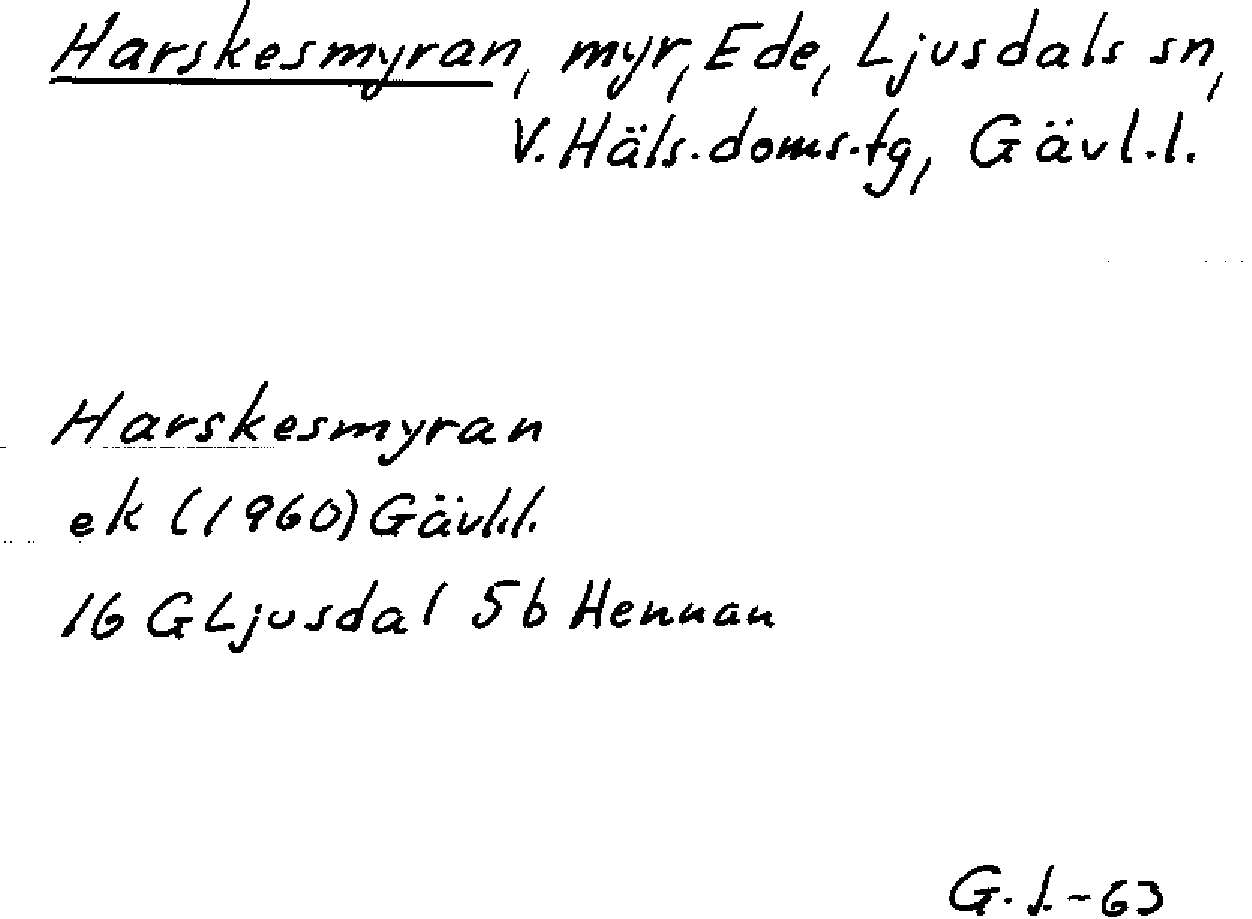 Harskesmyran, myr, Ede, Ljusdals sn,
V. Häls. doms.tg, Gävl.l.
Harskesmyran
ek (1960) Gävl.l.
16 G Ljusdal 5b Hennan
G. J. -63